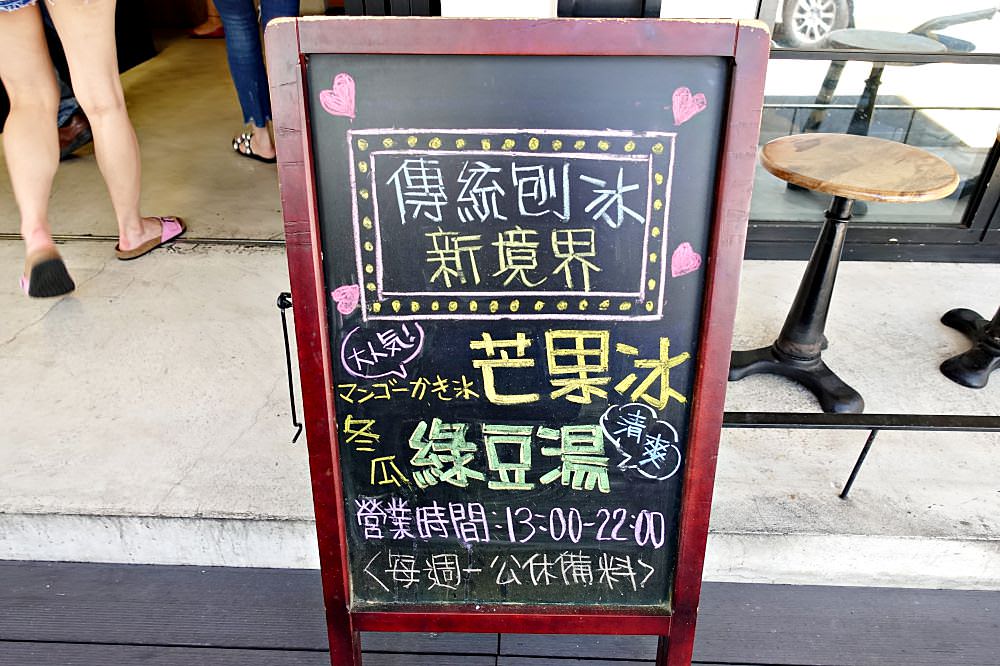 傳統刨冰
新境界
大人気!!
マンゴーかき氷 芒果冰
冬瓜 綠豆湯 清爽
營業時間:13:00-22:00
<每週一公休備料>